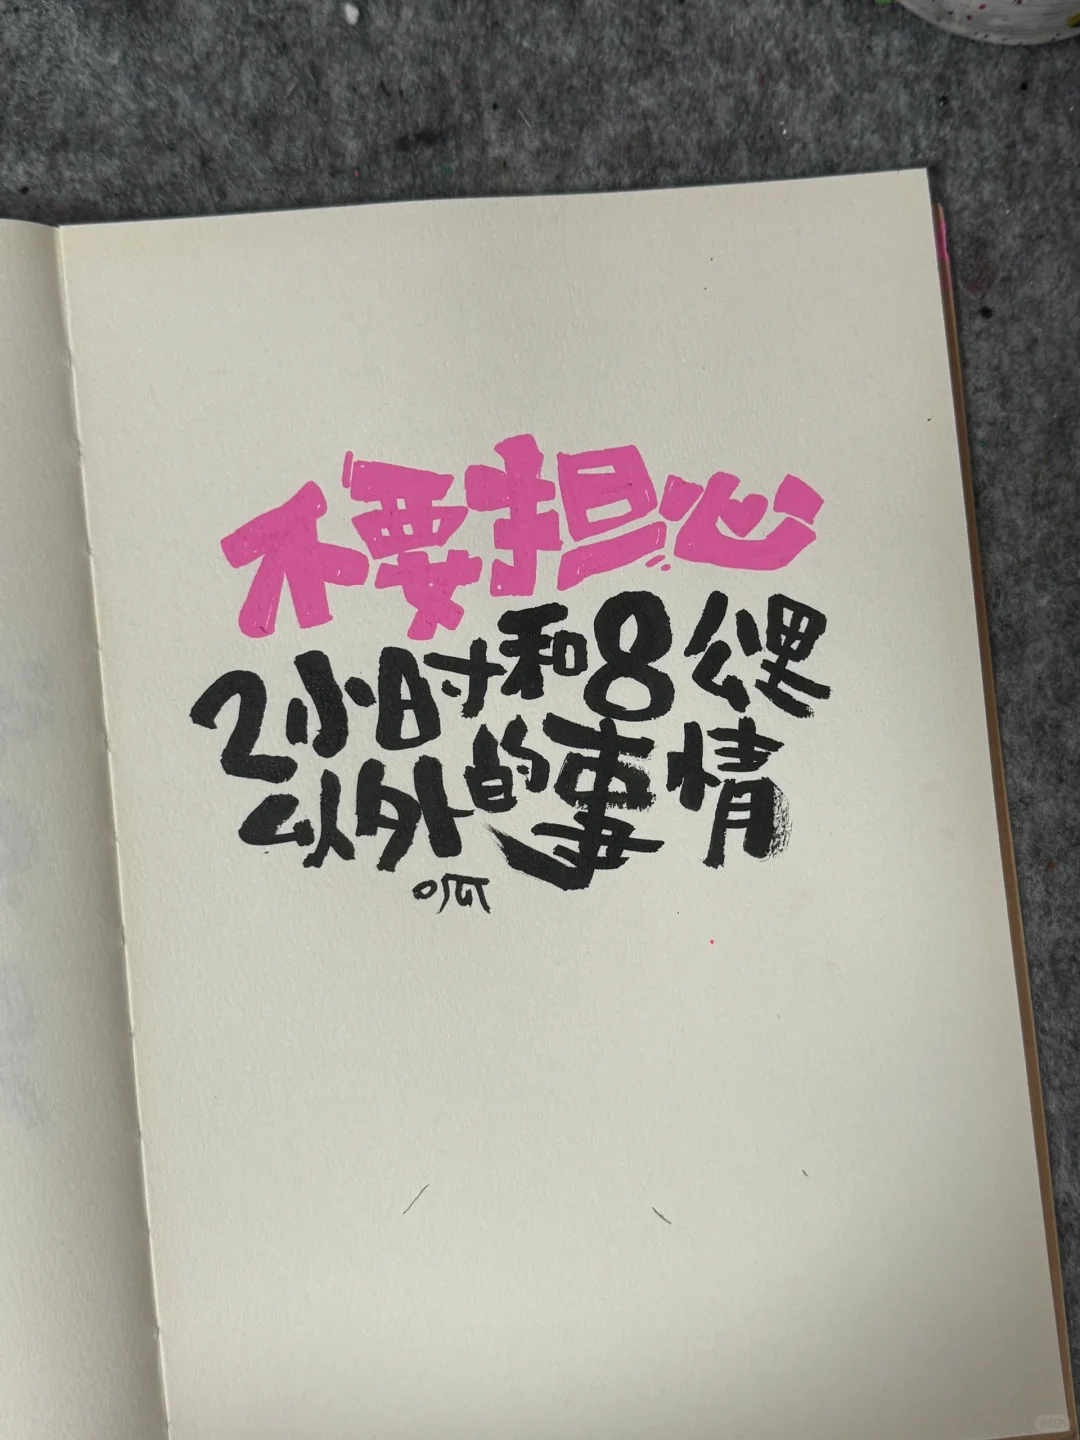 不要担心
2小时和8公里
以外的事情
呱